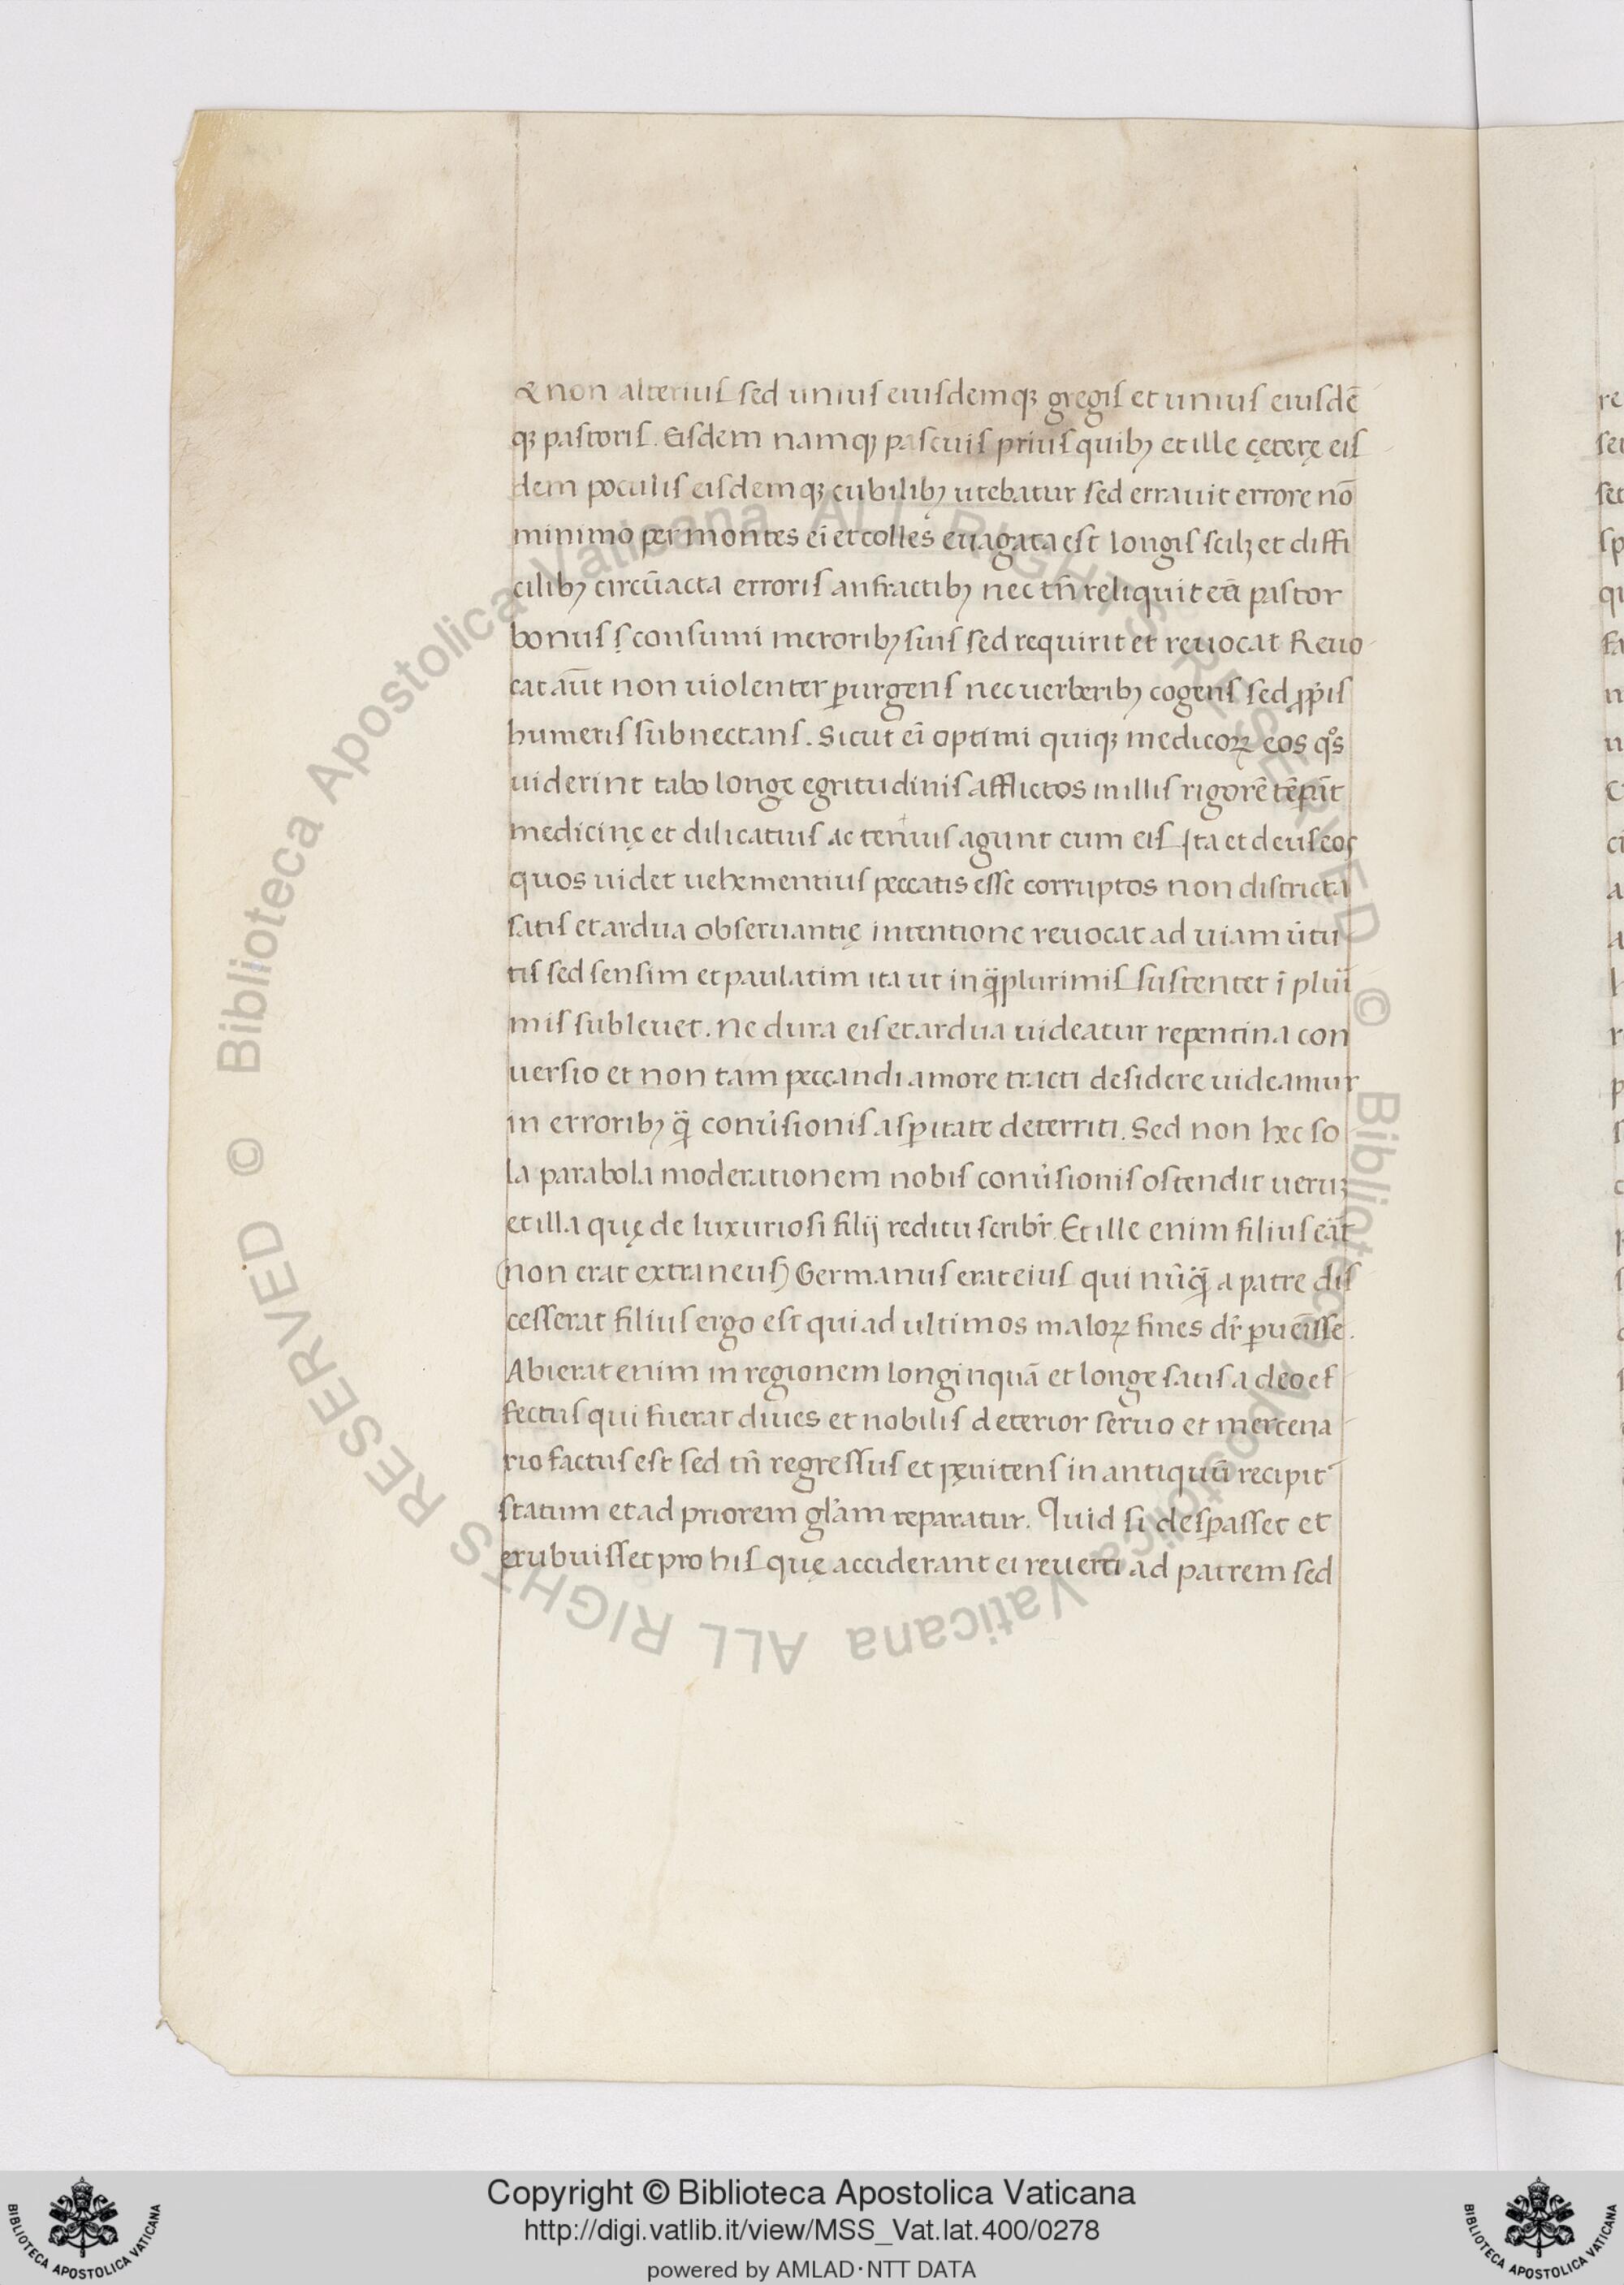 & non alterius sed unius eiusdemqꝫ gregis et unius eiusdē
qꝫ pastoris. Eisdem namqꝫ pascuis prius quibꝫ et ille cęterę eis
dem poculis eisdemqꝫ cubilibꝫ utebatur sed errauit errore nō
minimo per montes ei̅ et colles euagata est longis scilꝫ et diffi
cilibꝫ circūacta erroris anfractibꝫ nec tn̄ reliquit eā pastor
bonus consumi meroribꝫ suis sed requirit et reuocat Reuo
cat aūt non uiolenter ꝑurgens nec uerberibꝫ cogens sed ꝓp̄is
humeris subnectans. Sicut ei̅ optimi quiqꝫ medicoꝝ eos qͦs
uiderint tabo longę egritudinis afflictos in illis rigorē tēꝑāt
medicinę et dilicatius ac tenuius agunt cum eis Ita et deus eos
quos uidet uehementius peccatis esse corruptos non districta
satis et ardua obseruantię intentione reuocat ad uiam ůtu
tis sed sensim et paulatim ita ut in q̈plurimis sustentet ī plu̇i
mis subleuet. Ne dura eis et ardua uideatur repentina con
uersio et non tam peccandi amore tracti desidere uideamur
in erroribꝫ q̈̄ conu̓sionis asꝑitate deterriti. Sed non hec so
la parabola moderationem nobis conu̓sionis ostendit ueruꝫ
et illa quę de luxuriosi filij reditu scribr̄. Et ille enim filius eāt
(non erat extraneus) Germanus erat eius qui nūq̈̄ a patre dis
cesserat filius ergo est qui ad ultimos maloꝝ fines dr̄ ꝑuēisse.
Abierat enim in regionem longinquā et longe satis a deo ef
fectus qui fuerat diues et nobilis deterior seruo et mercena
rio factus est sed tn̄ regressus et pęnitens in antiquū recipit
statum et ad priorem gl̄am reparatur. Quid si desꝑasset et
erubuisset pro his quę acciderant ei reuerti ad patrem sed
© Biblioteca Apostolica Vaticana ALL RIGHTS RESERVED
© Biblioteca Apostolica Vaticana ALL RIGHTS RESERVED
Copyright © Biblioteca Apostolica Vaticana
http://digi.vatlib.it/view/MSS_Vat.lat.400/0278
powered by AMLAD·NTT DATA
BIBLIOTECA APOSTOLICA VATICANA
BIBLIOTECA APOSTOLICA VATICANA